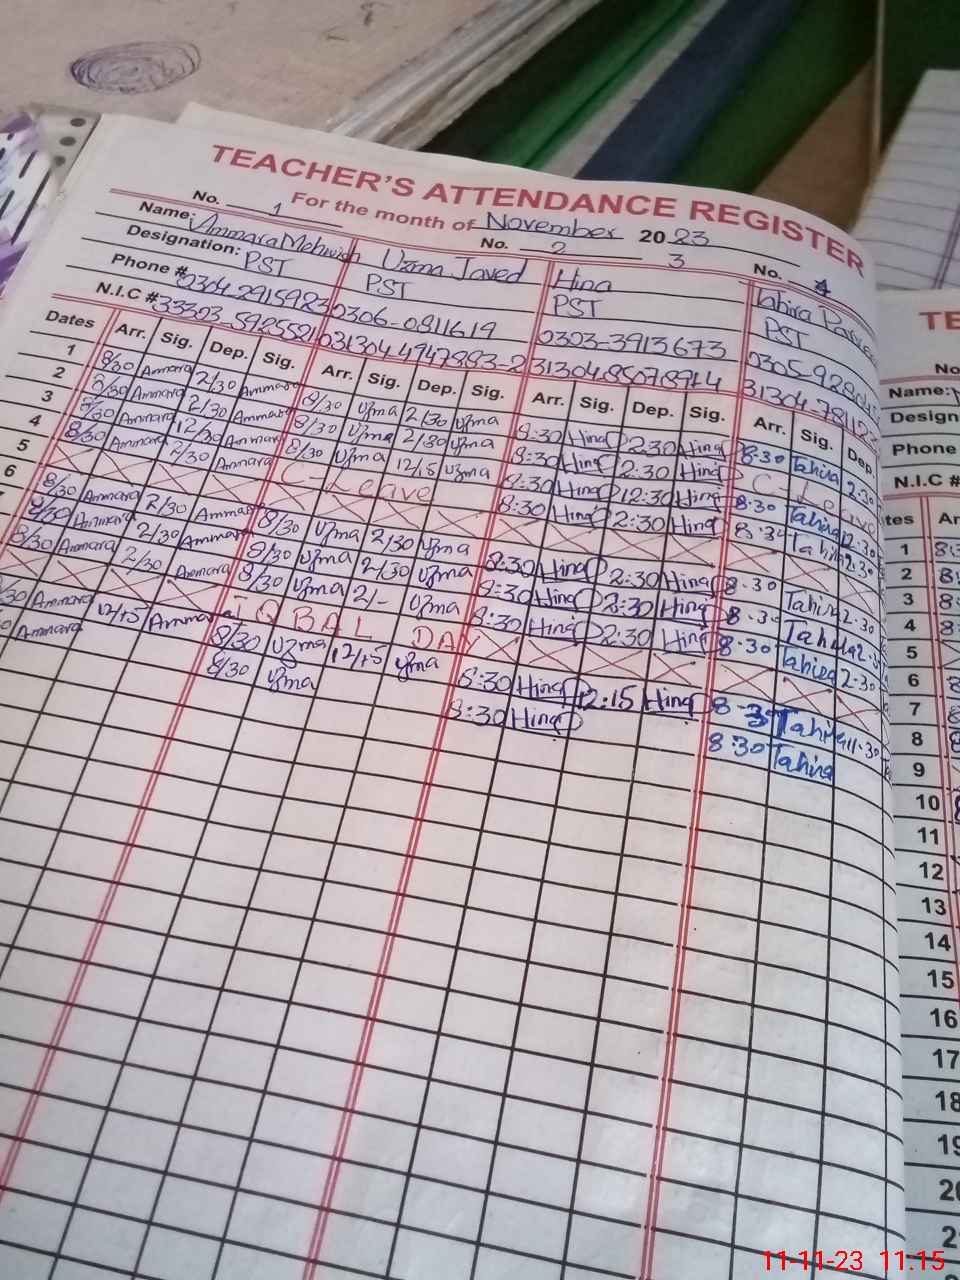 TEACHER'S ATTENDANCE REGISTER
For the month of November 2023
No. 1 No. 2 3 No. 4
Name: Ammara Mehwish Uzma Javed Hina Tahira Parveen
Designation: PST PST PST PST
Phone # 0304 2915923 0306-0811619 0303-3913673
N.I.C #
Dates Arr. Sig. Dep. Sig. Arr. Sig. Dep. Sig. Arr. Sig. Dep. Sig. Arr. Sig. Dep.
1 8/30 Ammara 2/30 Ammara 8/30 Uzma 2/30 Uzma 8:30 Hina 2:30 Hina 8:30 Tahira 2:30
2 8/30 Ammara 2/30 Ammara 8/30 Uzma 2/30 Uzma 8:30 Hina 2:30 Hina C-Leave
3 8/30 Ammara 12/30 Ammara 8/30 Uzma 12/15 Uzma 8:30 Hina 12:30 Hina 8:30 Tahira 12:30
4 8/30 Ammara 2/30 Ammara C-Leave 8:30 Hina 2:30 Hina 8:30 Tahira 2:30
5
6 8/30 Ammara 2/30 Ammara 8/30 Uzma 2/30 Uzma 8:30 Hina 2:30 Hina 8:30 Tahira 2:30
8/30 Ammara 2/30 Ammara 8/30 Uzma 2/30 Uzma 8:30 Hina 2:30 Hina 8:30 Tahira 2:30
8/30 Ammara 2/30 Ammara 8/30 Uzma 2/- Uzma 8:30 Hina 2:30 Hina 8:30 Tahira 2:30
IQBAL DAY
Ammara 12/15 Ammara 8/30 Uzma 12/15 Uzma 8:30 Hina 12:15 Hina 8:30 Tahira 11:30
Ammara 8/30 Uzma 8:30 Hina 8:30 Tahira
TE
No
Name:
Design
Phone
N.I.C #
tes Ar
1
2
3
4
5
6
7
8
9
10
11
12
13
14
15
16
17
18
19
20
2
11-11-23 11:15